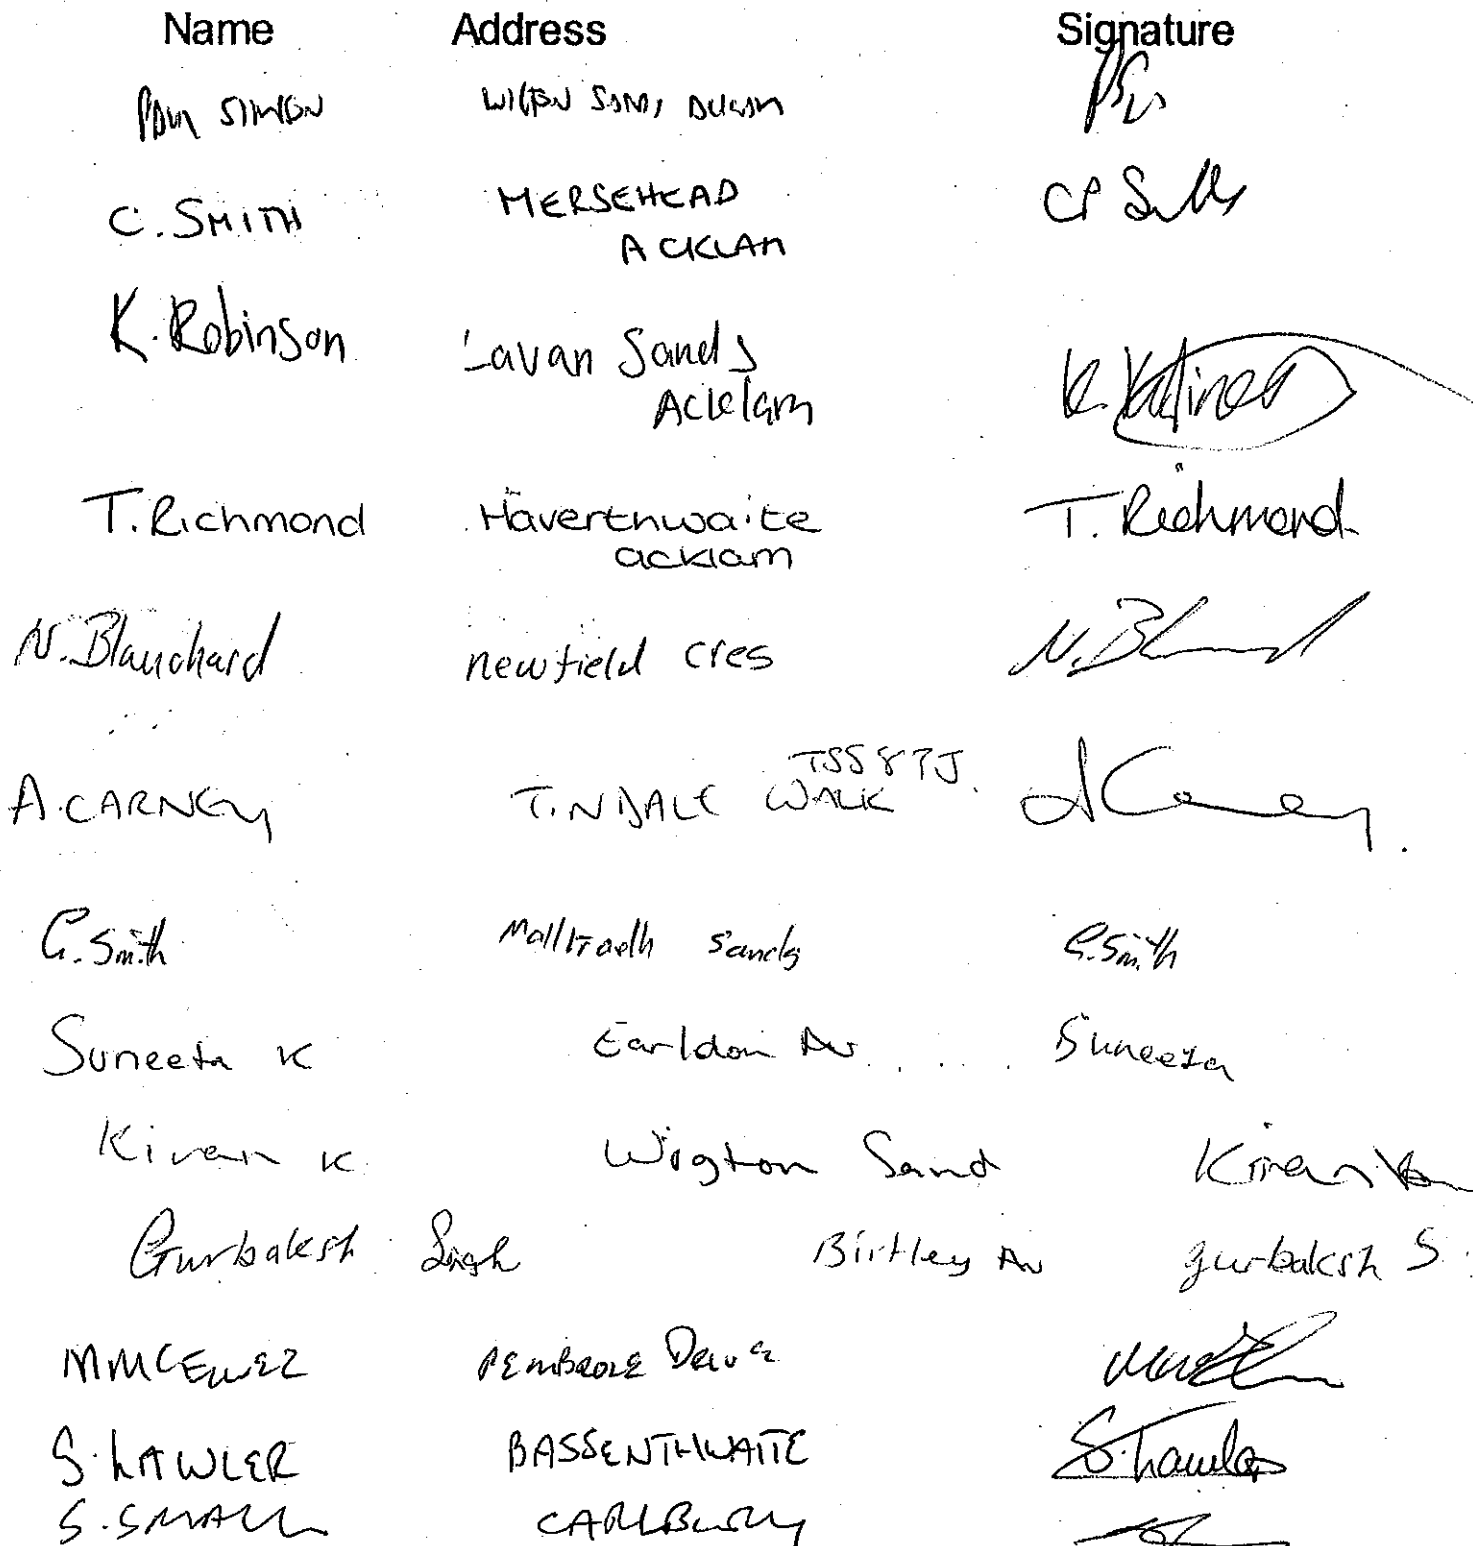 Name Address Signature
PAUL SIMON
C. SMITH MERSEHEAD
ACKLAM
K. Robinson Lavan Sands
Acklam
T. Richmond Haverthwaite T. Richmond
acklam
N. Blanchard newfield cres N. Bl
TS5 8TJ.
A. CARNEY TINDALE WALK A Carney.
G. Smith Malltraeth Sands G. Smith
Suneeta K Earldon Av Suneeta
Kiran K Wigton Sand Kiran
Gurbaksh Singh Birtley Av gurbaksh S.
PEMBROKE DRIVE
S. LAWLER BASSENTHWAITE S. Lawler
S. SMALL CARLBURY